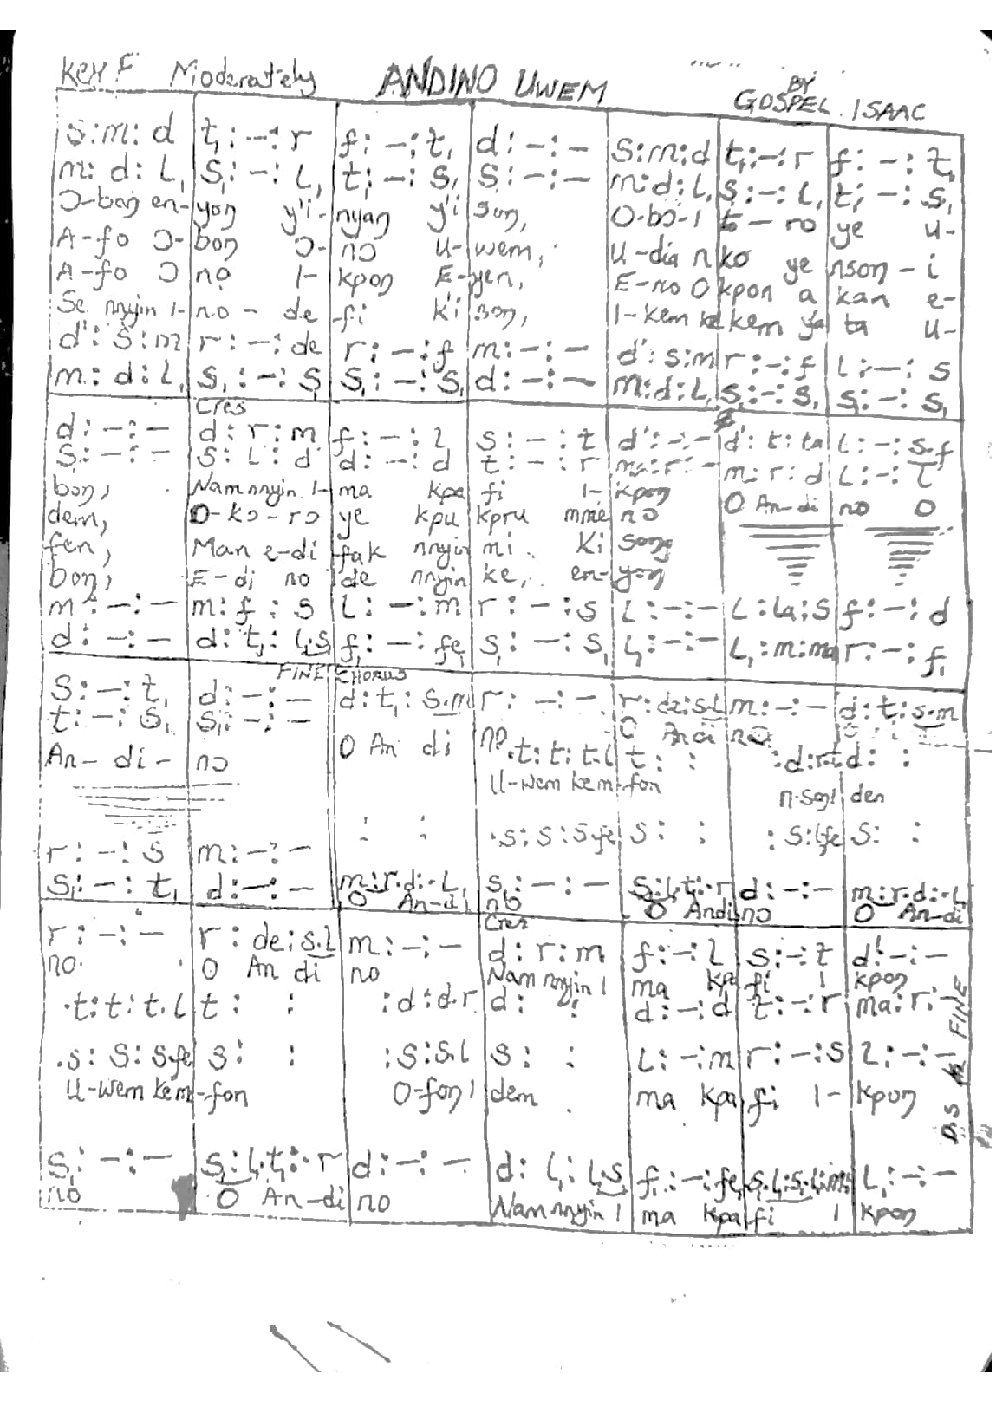 Key F Moderately ANDINO UWEM BY GOSPEL ISAAC
s:m:d | t₁:–:r | f:–:t₁ | d:–:– | s:m:d | t₁:–:r | f:–:t₁
m:d:L₁ | S₁:–:L₁ | t₁:–:S₁ | S:–:– | m:d:L₁ | S₁:–:L₁ | t₁:–:S₁
Ɔ-boŋ en- | yoŋ y'i- | nyaŋ y'i | soŋ, | O-bɔ-i | to-ro | ye u-
A-fo Ɔ- | boŋ Ɔ- | nɔ u- | wem, | U-dia n | ko ye | nsoŋ-i
A-fo Ɔ | nọ I- | kpoŋ E- | yen, | E-no O | kpon a | kan e-
Se nnyin I- | no-de | -fi k'i | soŋ, | I-kem ke | kem ya | ta u-
d':s:m | r:–:de | r:–:f | m:–:– | d':s:m | r:–:f | L:–:s
m:d:L₁ | S₁:–:S₁ | S₁:–:S₁ | d:–:– | m:d:L₁ | S₁:–:S₁ | S₁:–:S₁
Cres
d:–:– | d:r:m | f:–:l | s:–:t | d':–:– | d':t:ta | L:–:s.f
S:–:– | S:L:d | d:–:d | t:–:r | ma:r:– | m:r:d | L:–:t
boŋ, | Nam nnyin I- | ma kpa | fi I- | kpoŋ | O An-di | nɔ O
dem, | O-kɔ-rɔ | ye kpu | kpru mme | nɔ
fen, | Man e-di | fak nnyin | mi. Ki | soŋ
boŋ, | E-di no | de nnyin | ke, en- | yoŋ
m:–:– | m:f:s | L:–:m | r:–:s | L:–:– | L:la:s | f:–:d
d:–:– | d:t₁:L₁.S₁ | f₁:–:fe₁ | S₁:–:S₁ | L₁:–:– | L₁:m:ma | r:–:f₁
FINE CHORUS
S:–:t₁ | d:–:– | d:t₁:s.m | r:–:– | r:de:s.l | m:–:– | d:t:s.m
t:–:S₁ | S₁:–:– | O An di | no | O An di | no
An-di- | nɔ | .t:t:t.l | t: : | :d:r.t | d: :
U-wem kem- | fon | n-soŋ I | den
: : | .s:s:s.fe | s: : | :s:l.fe | s: :
r:–:s | m:–:–
S₁:–:t₁ | d:–:– | m:r.d:-.L₁ | S₁:–:– | S₁:L₁.t₁:-.r | d:–:– | m:r.d:-.L₁
O An-di | no | O Andi | no | O An-di
Cres
r:–:– | r:de:s.l | m:–:– | d:r:m | f:–:l | s:–:t | d':–:–
no | O An di | no | Nam nnyin I | ma kpa | fi I | kpoŋ
.t:t:t.l | t: : | :d:d.r | d: : | d:–:d | t:–:r | ma:r:
.s:s:s.fe | s: : | :s:s.l | s: : | L:–:m | r:–:s | L:–:–
U-wem kem- | fon | O-fon I | dem | ma kpa | fi I- | kpoŋ
D.S FINE
S₁:–:– | S₁:L₁.t₁:-.r | d:–:– | d:L₁:L₁.S₁ | f₁:–:fe₁ | L₁:–:–
no | O An-di | no | Nam nnyin I | ma kpa | fi I | kpoŋ